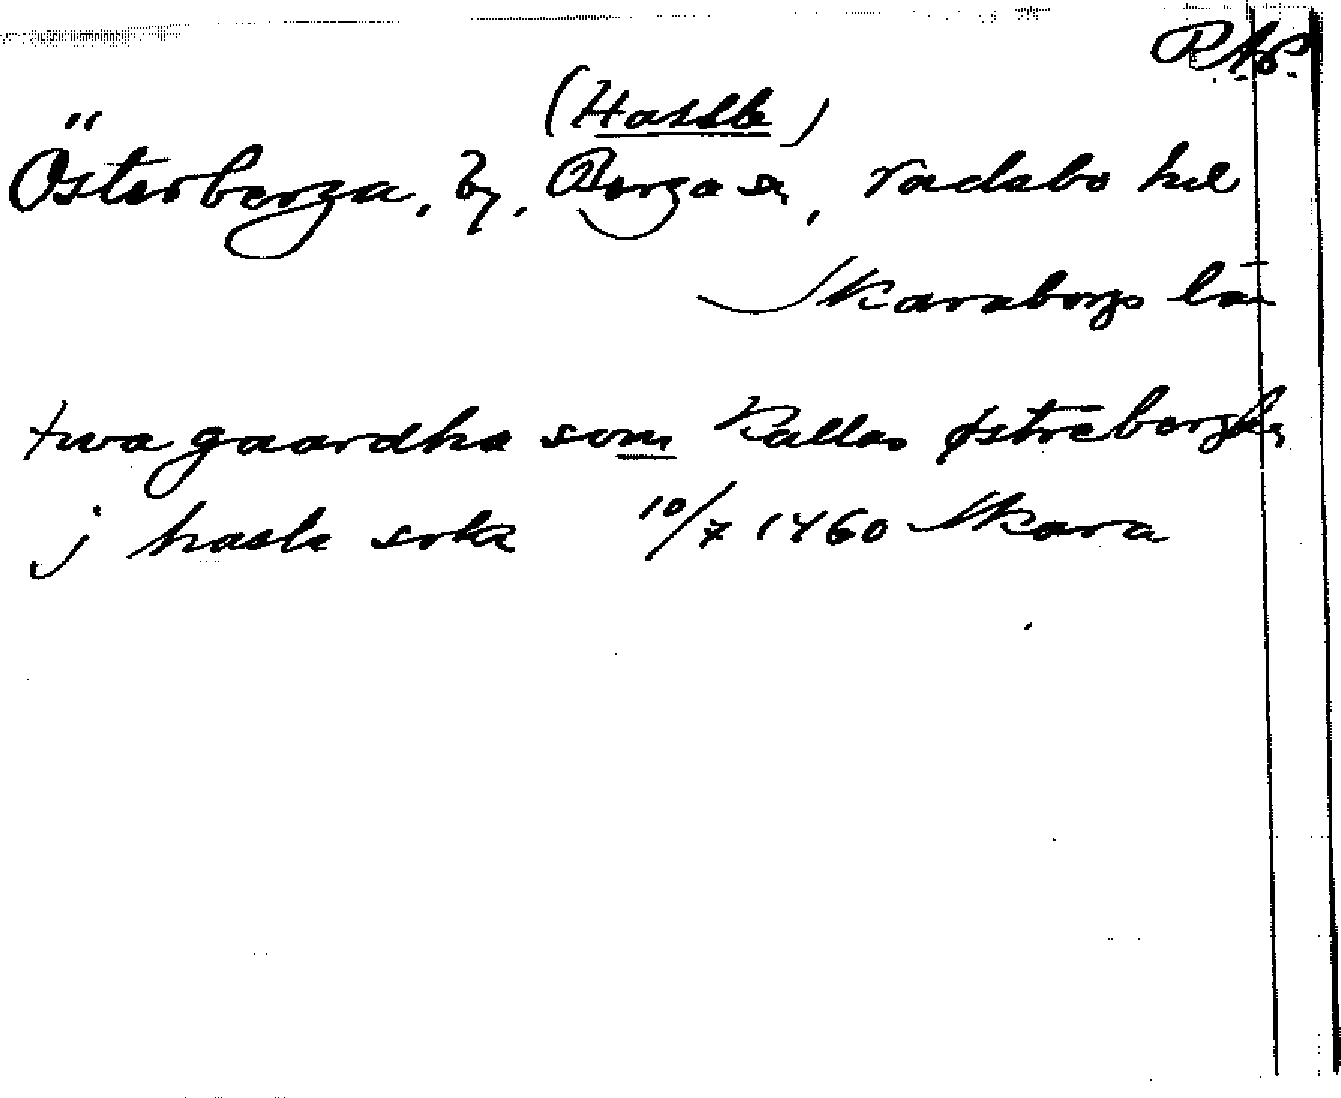 R.A.P.
(Hassle)
Österberga, by, Berga sn, Vadsbo hd
Skaraborgs län
twa gaardha som kallas østrebergha
j hasle sokn 10/7 1460 Skara